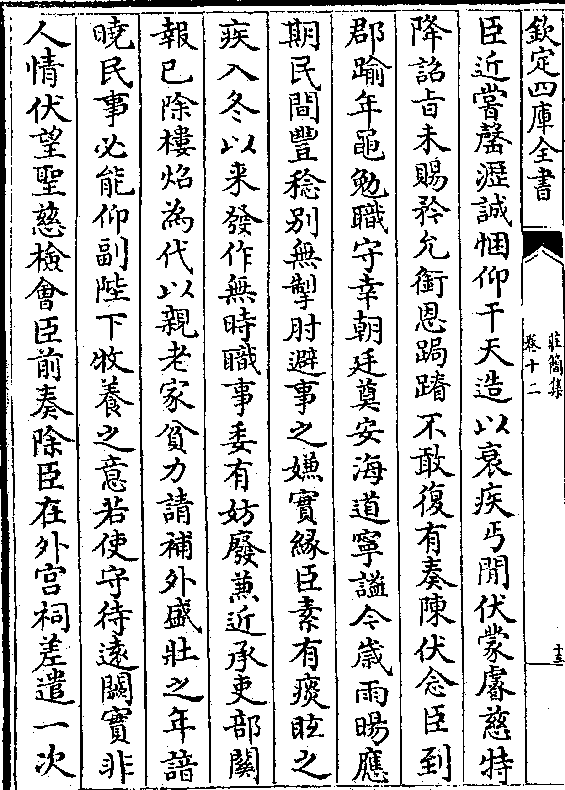 欽定四庫全書
莊簡集
卷十二
十三
臣近嘗罄瀝誠悃仰干天造以衰疾丐閒伏蒙睿慈特
降詔旨未賜矜允銜恩跼蹐不敢復有奏陳伏念臣到
郡踰年黽勉職守幸朝廷奠安海道寧謐今歲雨暘應
期民間豐稔别無掣肘避事之嫌實緣臣素有痰眩之
疾入冬以来發作無時職事委有妨廢兼近承吏部關
報已除樓炤為代以親老家貧力請補外盛壯之年諳
曉民事必能仰副陛下牧養之意若使守待遠闕實非
人情伏望聖慈檢會臣前奏除臣在外宫祠差遣一次